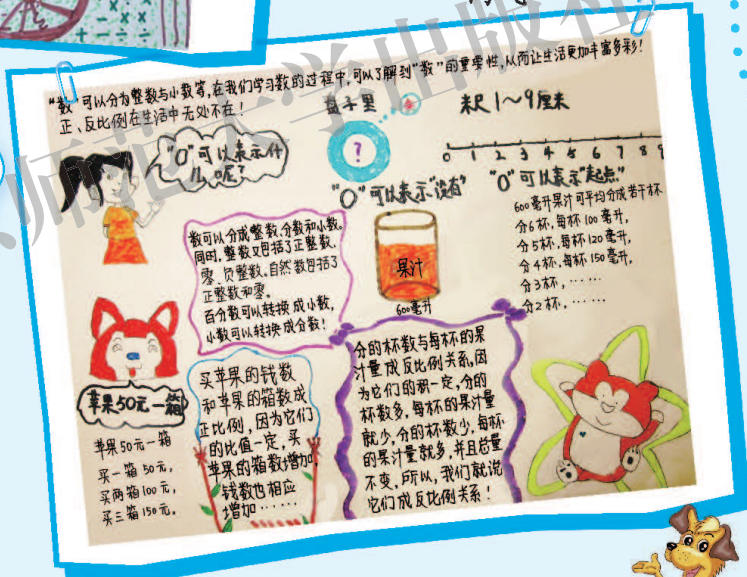 "数"可以分为整数与小数等,在我们学习数的过程中,可以了解到"数"的重要性,从而让生活更加丰富多彩!
正、反比例在生活中无处不在!
"0"可以表示什
么呢?
盘子里
?
"0"可以表示"没有"
米尺1～9厘米
0 1 2 3 4 5 6 7 8 9
"0"可以表示"起点"
数可以分成整数、分数和小数。
同时,整数又包括了正整数、
零、负整数。自然数包括了
正整数和零。
百分数可以转换成小数,
小数可以转换成分数!
果汁
600毫升
600毫升果汁可平均分成若干杯
分6杯,每杯100毫升,
分5杯,每杯120毫升,
分4杯,每杯150毫升,
分3杯,……
分2杯,……
苹果50元一箱
苹果50元一箱
买一箱50元,
买两箱100元,
买三箱150元。
买苹果的钱数
和苹果的箱数成
正比例,因为它们
的比值一定,买
苹果的箱数增加,
钱数也相应
增加……
分的杯数与每杯的果
汁量成反比例关系,因
为它们的积一定,分的
杯数多,每杯的果汁量
就少,分的杯数少,每杯
的果汁量就多,并且总量
不变。所以,我们就说
它们成反比例关系!
师范大学出版社